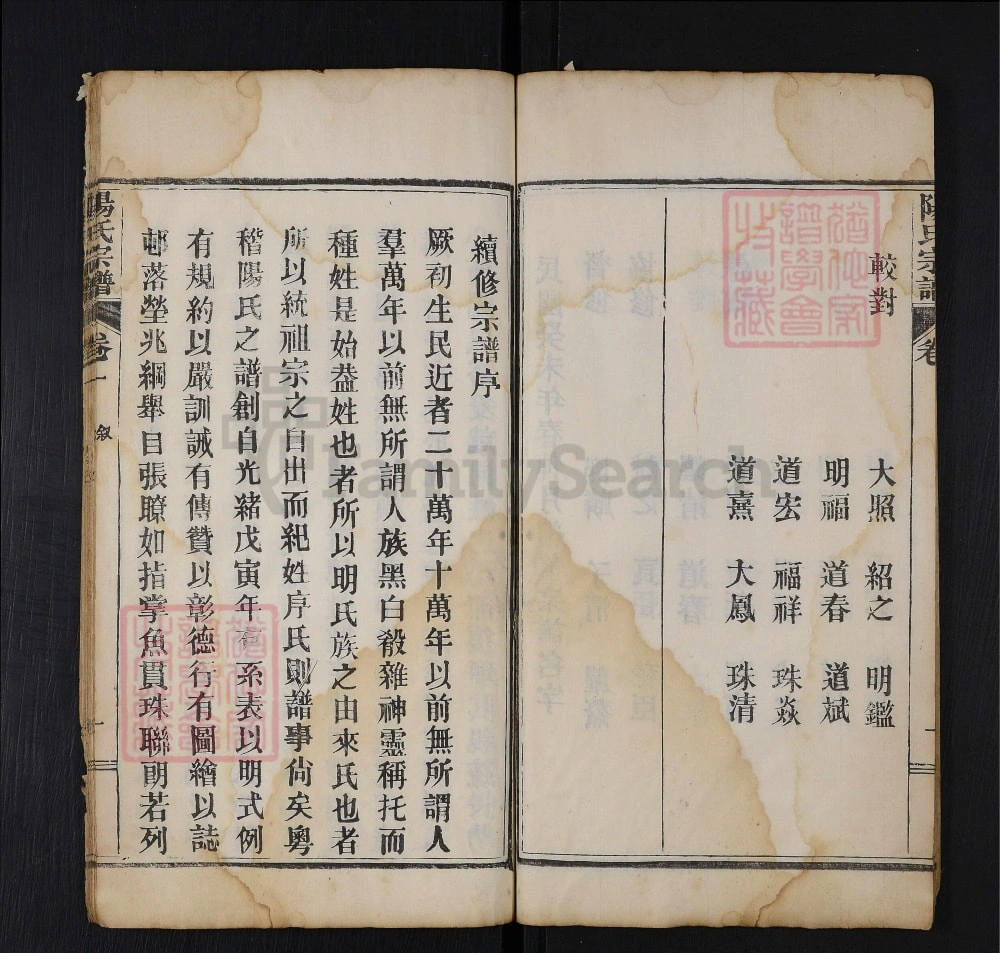 陽氏宗譜
較對
大照 紹之 明鑑
明福 道春 道斌
道宏 福祥 珠焱
道熹 大鳳 珠清
續修宗譜序
厥初生民近者二十萬年十萬年以前無所謂人
羣萬年以前無所謂人族黑白殽雜神靈稱托而
種姓是始葢姓也者所以明氏族之由來氏也者
所以統祖宗之自出而紀姓序氏則譜事尙矣粵
稽陽氏之譜創自光緒戊寅年有系表以明式例
有規約以嚴訓誡有傳贊以彰德行有圖繪以誌
邨落塋兆綱舉目張瞭如指掌魚貫珠聯朗若列
陽氏宗譜 卷一 敘
FamilySearch